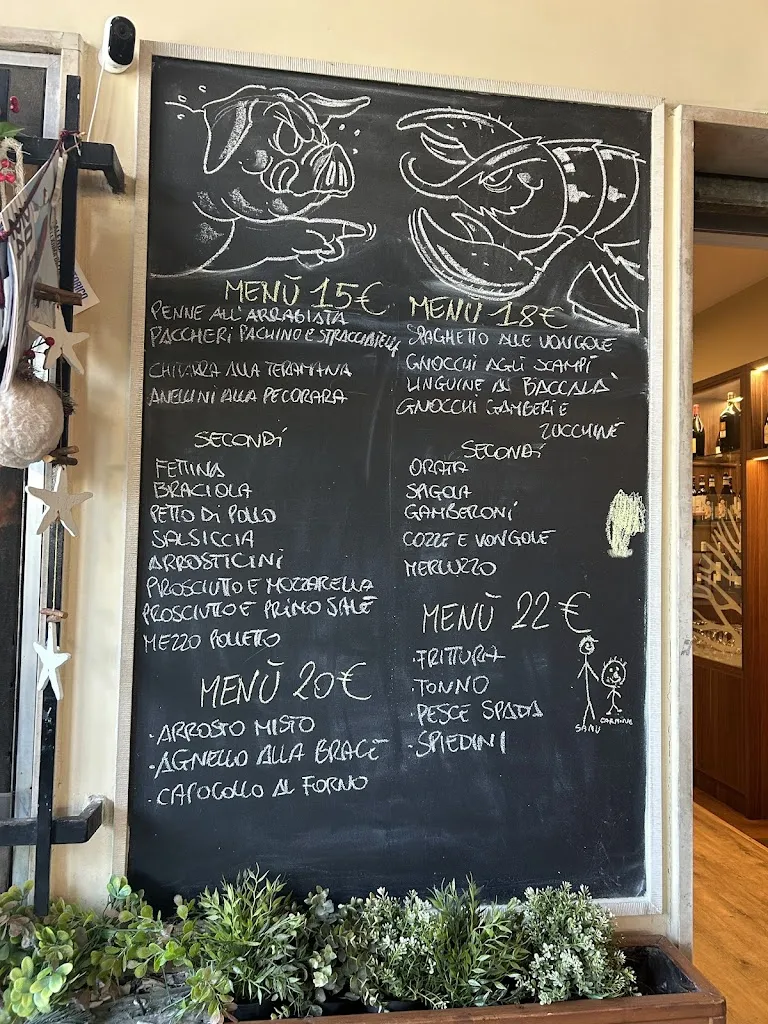 MENÙ 15€
PENNE ALL'ARRABIATA
PACCHERI PACHINO E STRACCIATELLA
CHITARRA ALLA TERAMANA
ANELLINI ALLA PECORARA
SECONDI
FETTINA
BRACIOLA
PETTO DI POLLO
SALSICCIA
ARROSTICINI
PROSCIUTTO E MOZZARELLA
PROSCIUTTO E PRIMO SALE
MEZZO POLLETTO
MENÙ 20€
·ARROSTO MISTO
·AGNELLO ALLA BRACE
·CAPOCOLLO AL FORNO
MENÙ 18€
SPAGHETTO ALLE VONGOLE
GNOCCHI AGLI SCAMPI
LINGUINE AL BACCALA'
GNOCCHI GAMBERI E
ZUCCHINE
SECONDI
ORATA
SPIGOLA
GAMBERONI
COZZE E VONGOLE
MERLUZZO
MENÙ 22€
·FRITTURA
·TONNO
·PESCE SPADA
·SPIEDINI
SAMU
CARMINE